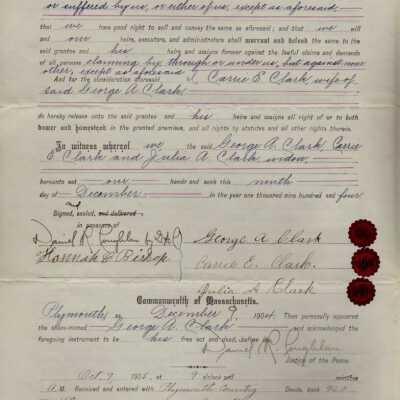 or suffered by us, or either of us, except as aforesaid:
that we have good right to sell and convey the same as aforesaid; and that we will
and our heirs, executors, and administrators shall warrant and defend the same to the
said grantee and his heirs and assigns forever against the lawful claims and demands
of all persons claiming by, through or under us, but against none
other, except as aforesaid
And for the consideration aforesaid I, Carrie E. Clark wife of
said George A. Clark
do hereby release unto the said grantee and his heirs and assigns all right of or to both
dower and homestead in the granted premises, and all rights by statutes and all other rights therein.
In witness whereof we the said George A. Clark, Carrie
E. Clark and Julia A. Clark widow,
hereunto set our hands and seals this ninth
day of December in the year one thousand nine hundred and four
Signed, sealed, and delivered
in presence of
Daniel R. Loughlin George A Clark
Hannah Bishop Carrie E. Clark.
Julia A. Clark
Commonwealth of Massachusetts.
Plymouth ss December 9, 1904. Then personally appeared
the above-named George A. Clark and acknowledged the
foregoing instrument to be his free act and deed, before me,
Daniel R. Loughlin
Justice of the Peace
Oct. 9 1905 at 9 o'clock
A. M. Received and entered with Plymouth County Deeds, book